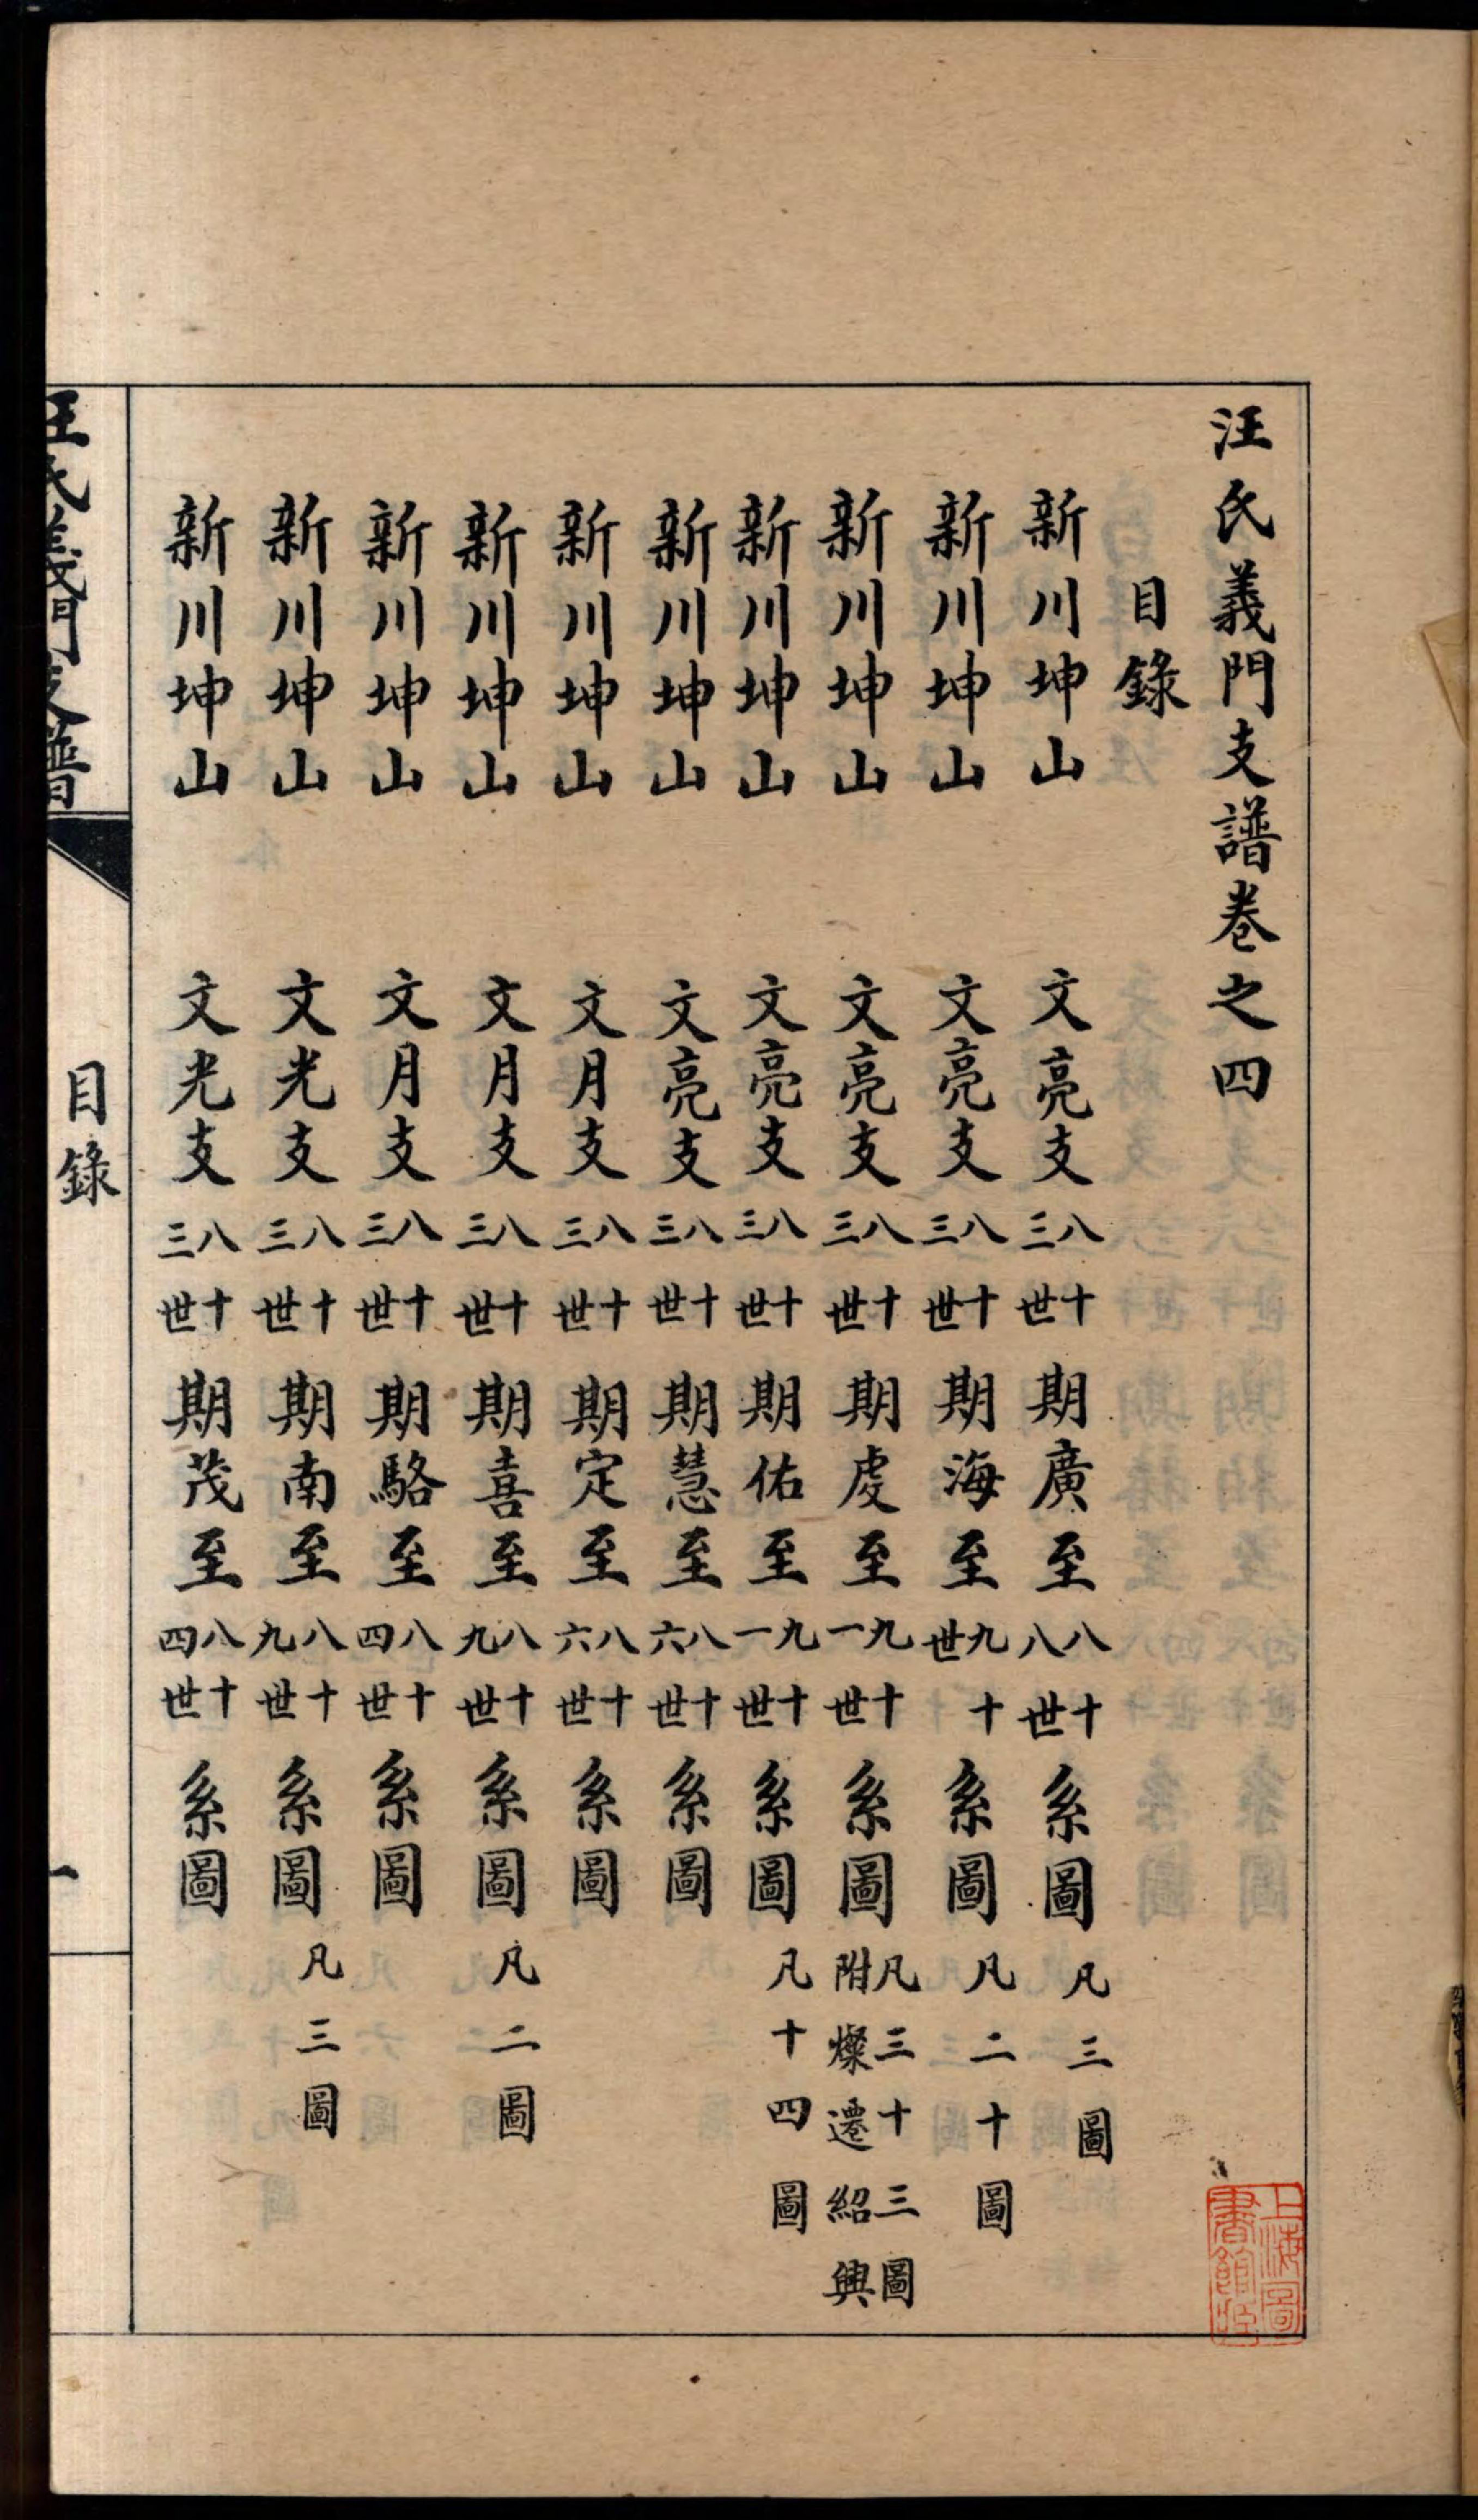 汪氏義門支譜卷之四
目錄
新川坤山 文亮支八十三世期廣至八十八世系圖凡三圖
新川坤山 文亮支八十三世期海至九十世系圖凡二十圖
新川坤山 文亮支八十三世期虔至九十一世系圖凡三十三圖附燦遷紹興
新川坤山 文亮支八十三世期佑至九十一世系圖凡十四圖
新川坤山 文亮支八十三世期慧至八十六世系圖
新川坤山 文月支八十三世期定至八十六世系圖
新川坤山 文月支八十三世期喜至八十九世系圖凡二圖
新川坤山 文月支八十三世期駱至八十四世系圖
新川坤山 文光支八十三世期南至八十九世系圖凡三圖
新川坤山 文光支八十三世期茂至八十四世系圖
汪氏義門支譜 目錄 一
上海圖書館藏